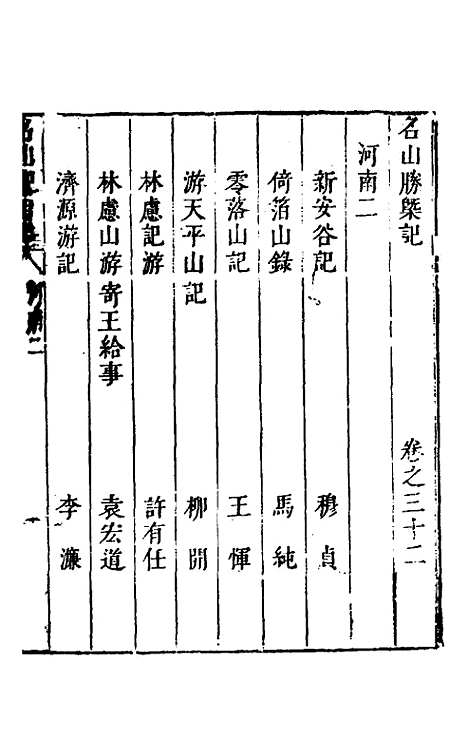 名山勝槩記 卷之三十二
河南二
新安谷記 穆貞
倚箔山錄 馬純
零落山記 王惲
游天平山記 柳開
林慮記游 許有任
林慮山游寄王給事 袁宏道
濟源游記 李濂